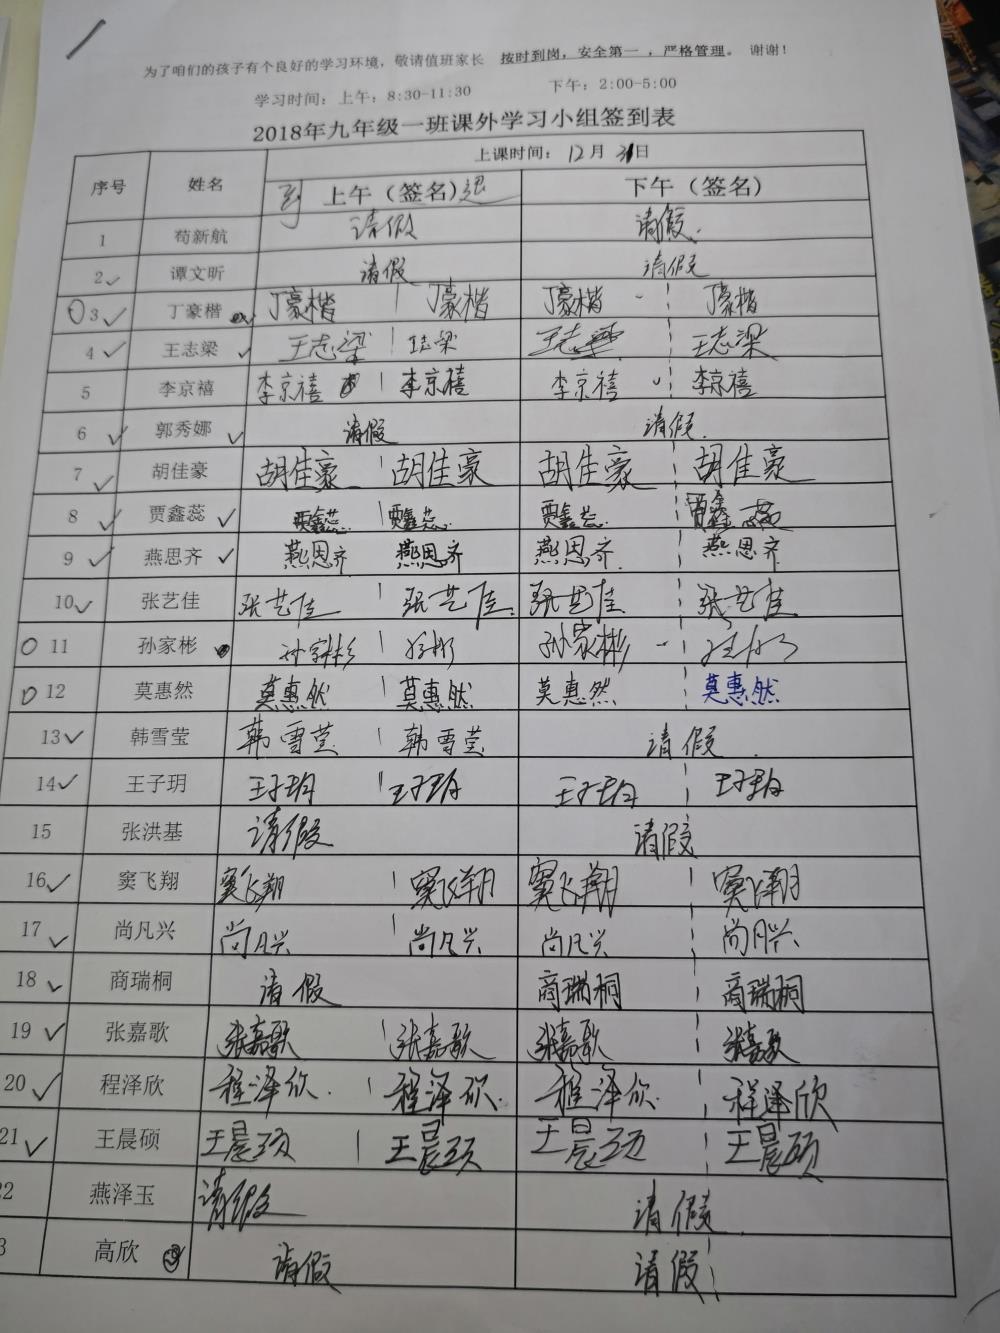 为了咱们的孩子有个良好的学习环境，敬请值班家长 按时到岗，安全第一，严格管理。 谢谢！
学习时间：上午：8:30-11:30 下午：2:00-5:00
2018年九年级一班课外学习小组签到表
序号 姓名 上课时间：12月31日
到 上午（签名）退 下午（签名）
1 苟新航 请假 请假.
2 谭文昕 请假 请假
3 丁豪楷 丁豪楷 丁豪楷 丁豪楷 丁豪楷
4 王志梁 王志梁 王志梁 王志梁 王志梁
5 李京禧 李京禧 李京禧 李京禧 李京禧
6 郭秀娜 请假 请假.
7 胡佳豪 胡佳豪 胡佳豪 胡佳豪 胡佳豪
8 贾鑫蕊 贾鑫蕊 贾鑫蕊 贾鑫蕊 贾鑫蕊
9 燕思齐 燕思齐 燕思齐 燕思齐 燕思齐
10 张艺佳 张艺佳 张艺佳 张艺佳 张艺佳
11 孙家彬 孙家彬 孙彬 孙家彬
12 莫惠然 莫惠然 莫惠然 莫惠然 莫惠然
13 韩雪莹 韩雪莹 韩雪莹 请假
14 王子玥 王子玥 王子玥 王子玥 王子玥
15 张洪基 请假 请假
16 窦飞翔 窦飞翔 窦飞翔 窦飞翔 窦飞翔
17 尚凡兴 尚凡兴 尚凡兴 尚凡兴 尚凡兴
18 商瑞桐 请假 商瑞桐 商瑞桐
19 张嘉歌 张嘉歌 张嘉歌 张嘉歌 张嘉歌
20 程泽欣 程泽欣. 程泽欣. 程泽欣. 程泽欣
21 王晨硕 王晨硕 王晨硕 王晨硕 王晨硕
22 燕泽玉 请假 请假.
3 高欣 请假 请假